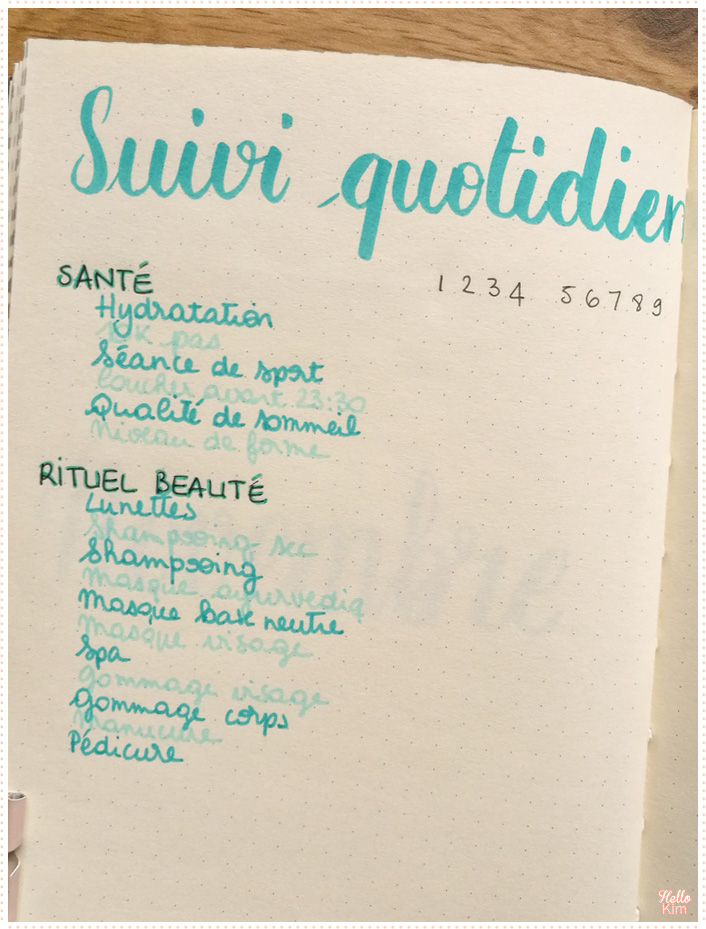 Suivi quotidien
1 2 3 4 5 6 7 8 9
SANTÉ
Hydratation
10K pas
Séance de sport
Coucher avant 23:30
Qualité de sommeil
Niveau de forme
RITUEL BEAUTÉ
Lunettes
Shampooing sec
Shampooing
Masque ayurvédiq
Masque base neutre
Masque visage
Spa
Gommage visage
Gommage corps
Manucure
Pédicure
Hello
Kim